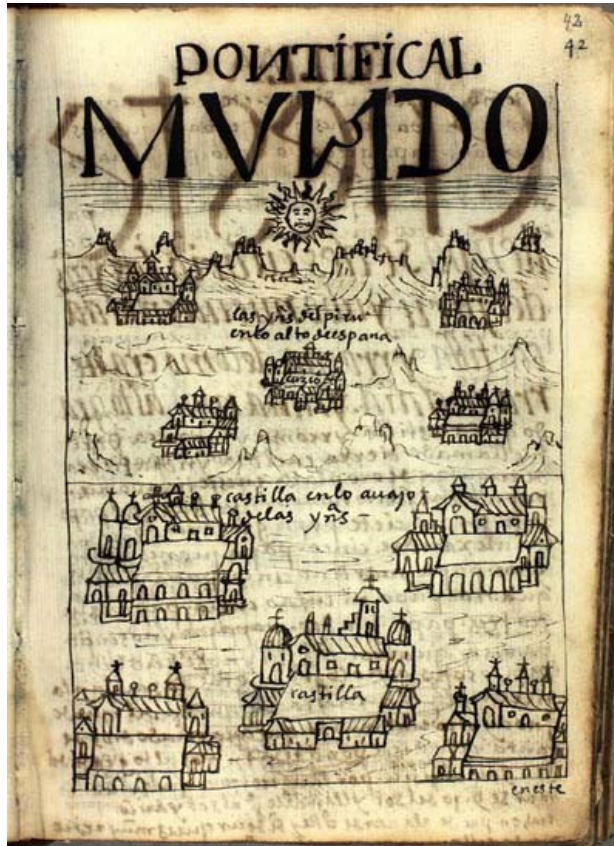 42
42
PONTIFICAL
MVNDO
las yns del piru
en lo alto de españa
cuzco
castilla en lo auajo
de las yns
a
castilla
en este